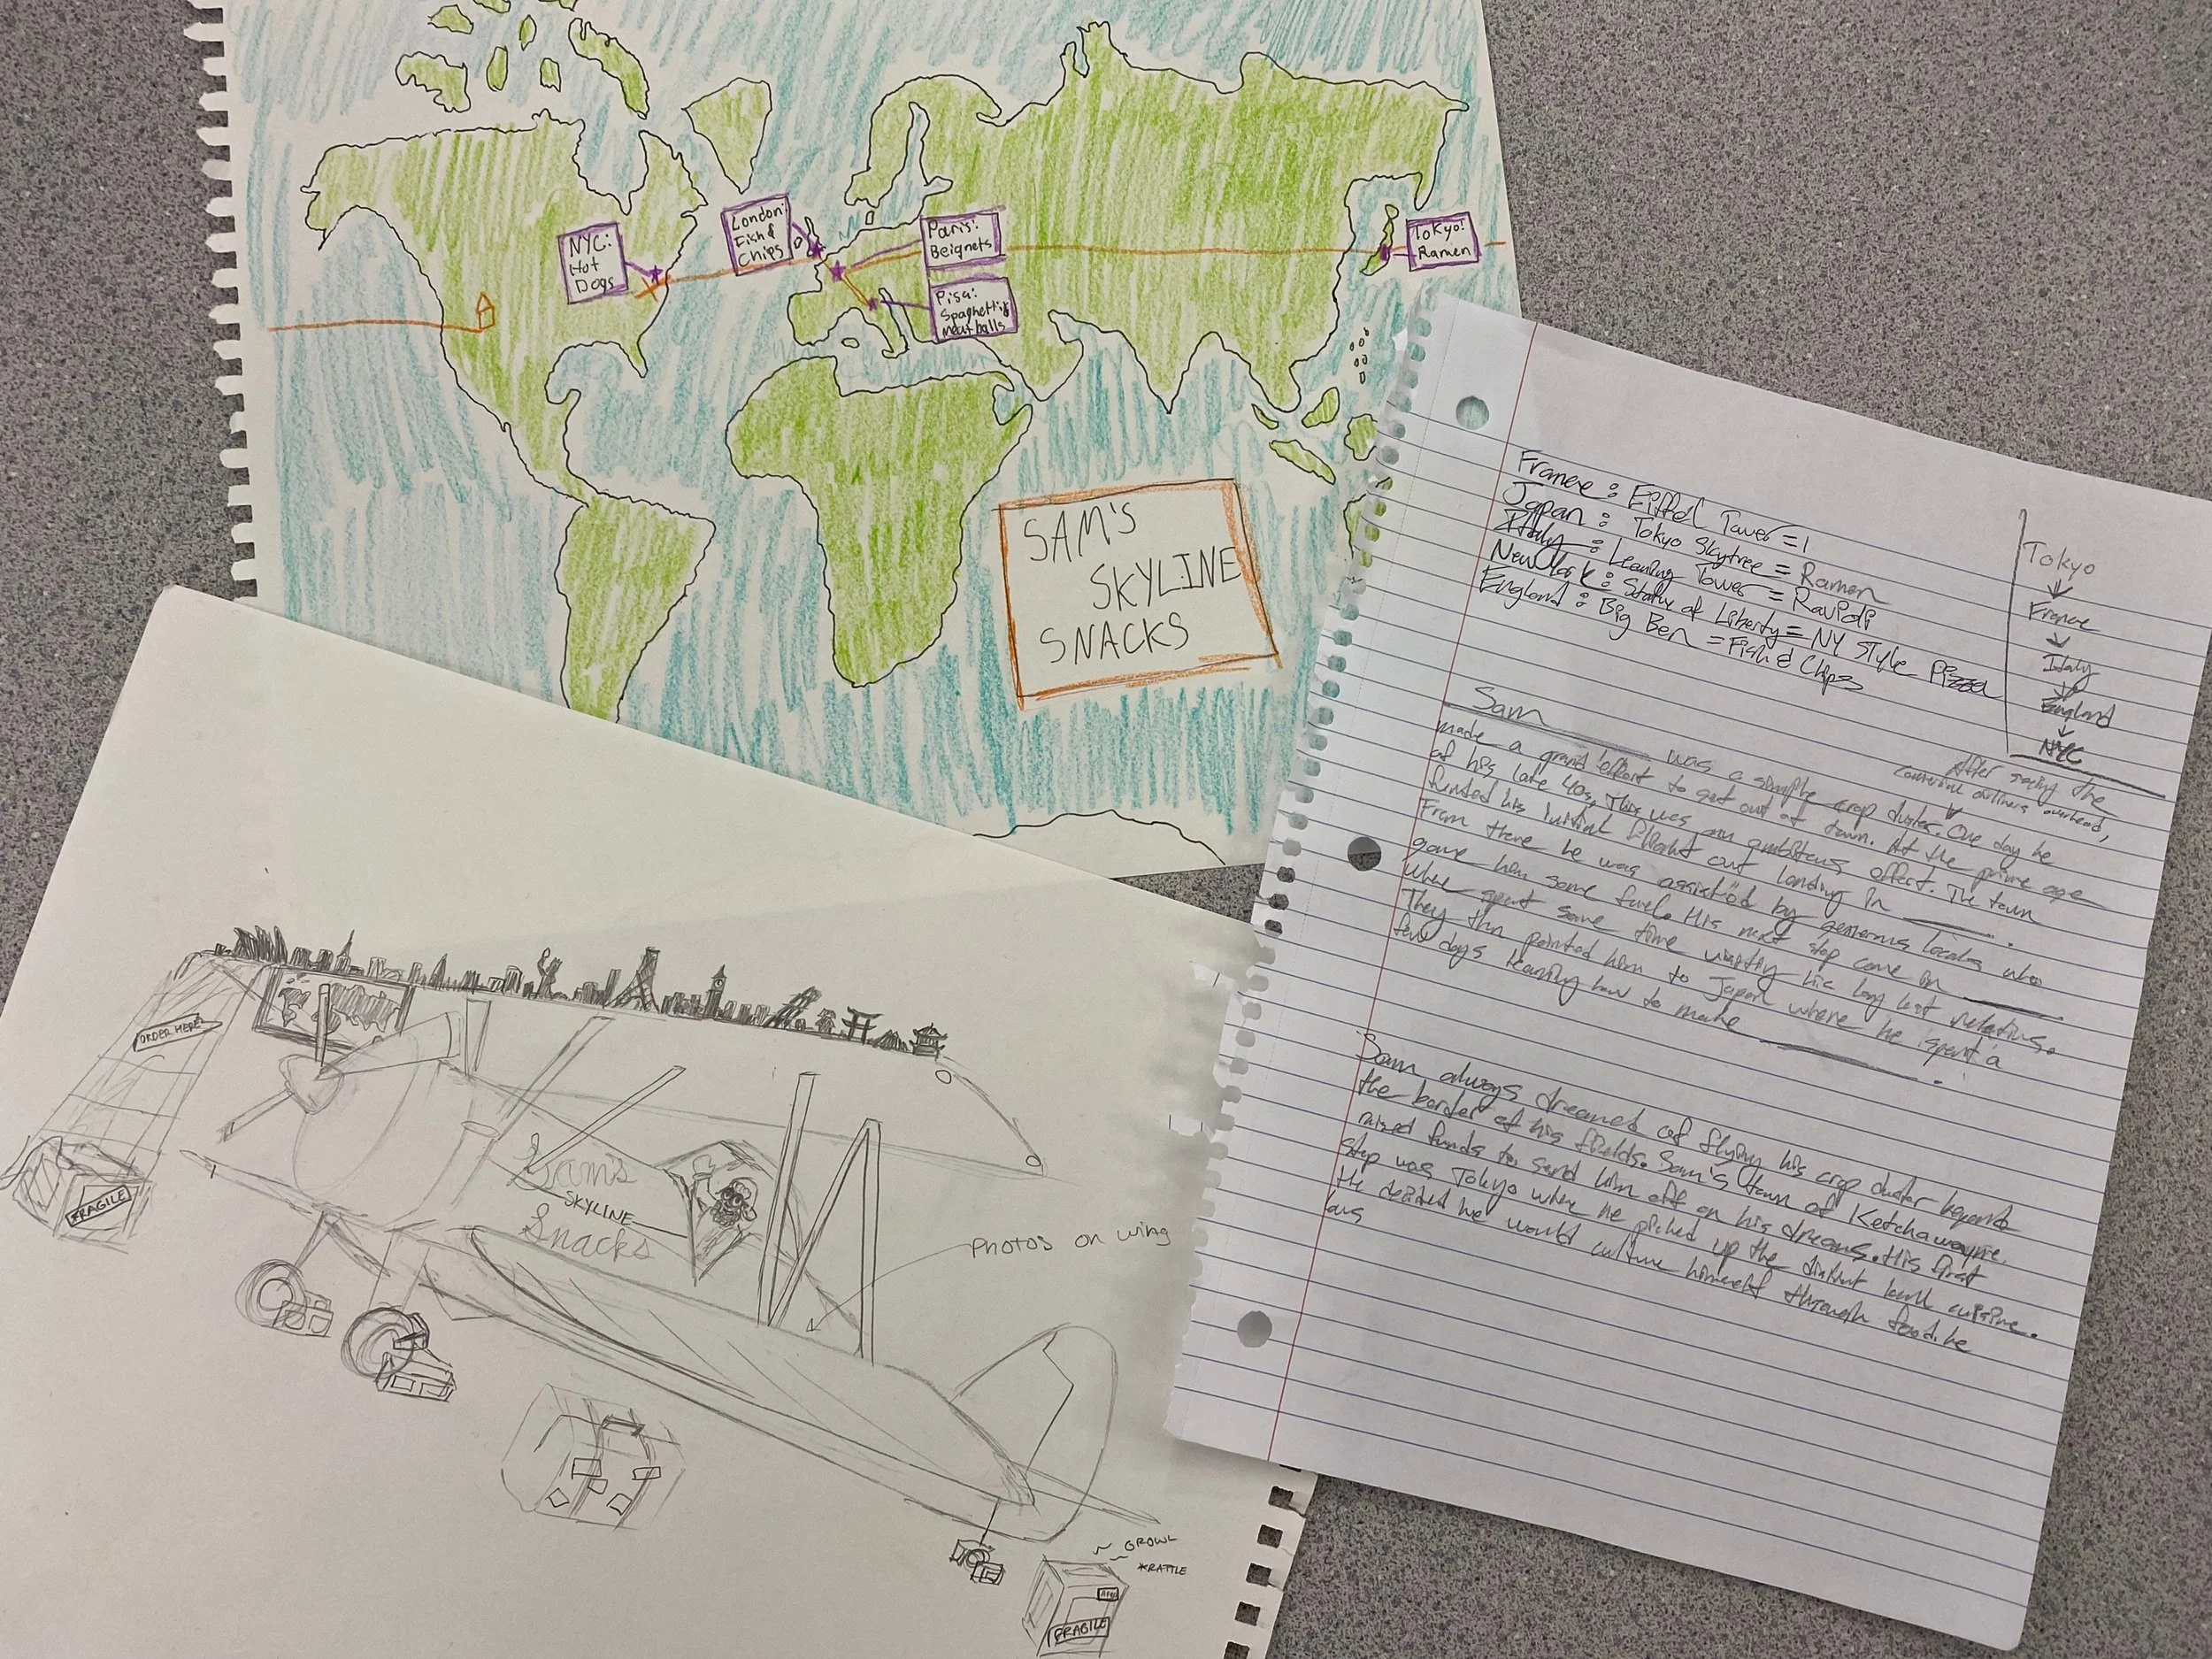 NYC:
Hot
Dogs
London:
Fish &
Chips
Paris:
Beignets
Pisa:
Spaghetti &
meatballs
Tokyo:
Ramen
SAM'S
SKYLINE
SNACKS
France : Eiffel Tower = 1
Japan : Tokyo Skytree = Ramen
Italy : Leaning Tower = Ravioli
New York : Statue of Liberty = NY Style Pizza
England : Big Ben = Fish & Chips
Tokyo
France
Italy
England
NYC
After seeing the
airliners overhead,
Sam was a simple crop duster. One day he
made a grand effort to get out of town. At the prime age
of his late 40s, this was an ambitous effort. The town
funded his initial flight out landing in
From there he was assisted by generous locals who
gave him some fuel. His next stop came in
where spent some time his long lost relatives.
They then pointed him to Japan where he spent a
few days learning how to make
Sam always dreamed of flying his crop duster beyond
the border of his fields. Sam's town of Ketchawayne,
raised funds to send him off on his dreams. His first
stop was Tokyo where he picked up the distint local cuisine.
He decided he would culture himself through food. he
was
ORDER HERE
FRAGILE
Sam's
SKYLINE
Snacks
PHOTOS ON WING
GROWL
*RATTLE
FRAGILE